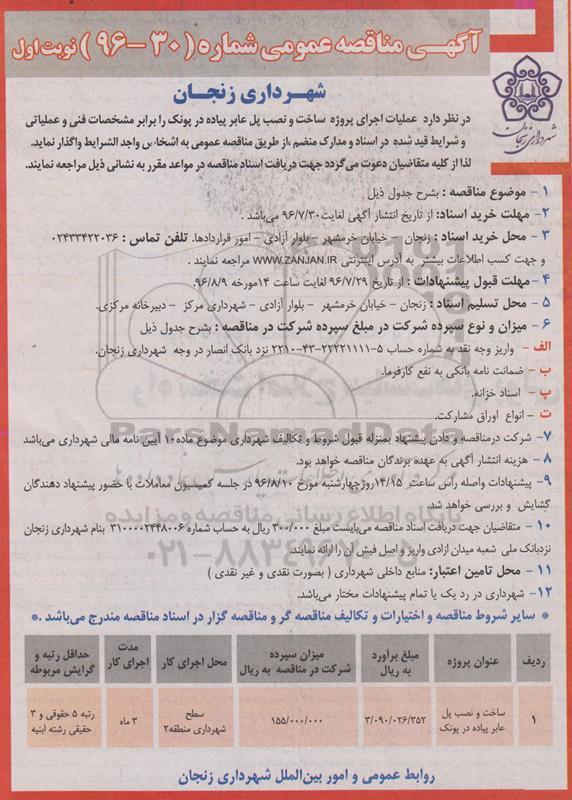 آگهی مناقصه عمومی شماره (۳۰-۹۶) نوبت اول
شهرداری زنجان
شهرداری زنجان
در نظر دارد عملیات اجرای پروژه ساخت و نصب پل عابر پیاده در پونک را برابر مشخصات فنی و عملیاتی
و شرایط قید شده در اسناد و مدارک منضم ،از طریق مناقصه عمومی به اشخاص واجد الشرایط واگذار نماید.
لذا از کلیه متقاضیان دعوت می گردد جهت دریافت اسناد مناقصه در مواعد مقرر به نشانی ذیل مراجعه نمایند.
۱- موضوع مناقصه : بشرح جدول ذیل
۲- مهلت خرید اسناد: از تاریخ انتشار آگهی لغایت ۹۶/۷/۳۰ می باشد .
۳ - محل خرید اسناد : زنجان - خیابان خرمشهر - بلوار آزادی - امور قراردادها. تلفن تماس : ۰۲۴۳۳۴۲۲۰۳۶
و جهت کسب اطلاعات بیشتر به آدرس اینترنتی WWW.ZANJAN.IR مراجعه نمایند .
۴ -مهلت قبول پیشنهادات : از تاریخ ۹۶/۷/۲۹ لغایت ساعت ۱۴ مورخه ۹۶/۸/۹.
۵ - محل تسلیم اسناد : زنجان - خیابان خرمشهر - بلوار آزادی - شهرداری مرکز - دبیرخانه مرکزی.
۶ - میزان و نوع سپرده شرکت در مبلغ سپرده شرکت در مناقصه : بشرح جدول ذیل
الف - واریز وجه نقد به شماره حساب ۵-۲۲۲۲۱۱۱۱-۴۳-۲۲۱۰ نزد بانک انصار در وجه شهرداری زنجان.
ب - ضمانت نامه بانکی به نفع کارفرما.
پ - اسناد خزانه.
ت - انواع اوراق مشارکت.
۷- شرکت درمناقصه و دادن پیشنهاد بمنزله قبول شروط و تکالیف شهرداری موضوع ماده ۱۰ آیین نامه مالی شهرداری می باشد
۸ - هزینه انتشار آگهی به عهده برندگان مناقصه خواهد بود.
۹- پیشنهادات واصله راس ساعت ۱۴/۱۵ روزچهارشنبه مورخ ۹۶/۸/۱۰ در جلسه کمیسیون معاملات با حضور پیشنهاد دهندگان
گشایش و بررسی خواهد شد.
۱۰ - متقاضیان جهت دریافت اسناد مناقصه می بایست مبلغ ۳۰۰/۰۰۰ ریال به حساب شماره ۳۱۰۰۰۰۲۴۴۸۰۰۶ بنام شهرداری زنجان
نزدبانک ملی شعبه میدان ازادی واریز و اصل فیش آن را ارائه نمایند.
۱۱ - محل تامین اعتبار: منابع داخلی شهرداری ( بصورت نقدی و غیر نقدی )
۱۲- شهرداری در رد یک یا تمام پیشنهادات مختار می باشد.
* سایر شروط مناقصه و اختیارات و تکالیف مناقصه گر و مناقصه گزار در اسناد مناقصه مندرج می باشد .*
ردیف عنوان پروژه مبلغ برآورد به ریال میزان سپرده شرکت در مناقصه به ریال محل اجرای کار مدت اجرای کار حداقل رتبه و گرایش مربوطه
۱ ساخت و نصب پل عابر پیاده در پونک ۳/۰۹۰/۰۲۶/۳۵۲ ۱۵۵/۰۰۰/۰۰۰ سطح شهرداری منطقه۲ ۳ ماه رتبه ۵ حقوقی و ۳ حقیقی رشته ابنیه
روابط عمومی و امور بین الملل شهرداری زنجان
ParsNamadData
پایگاه اطلاع رسانی مناقصه و مزایده